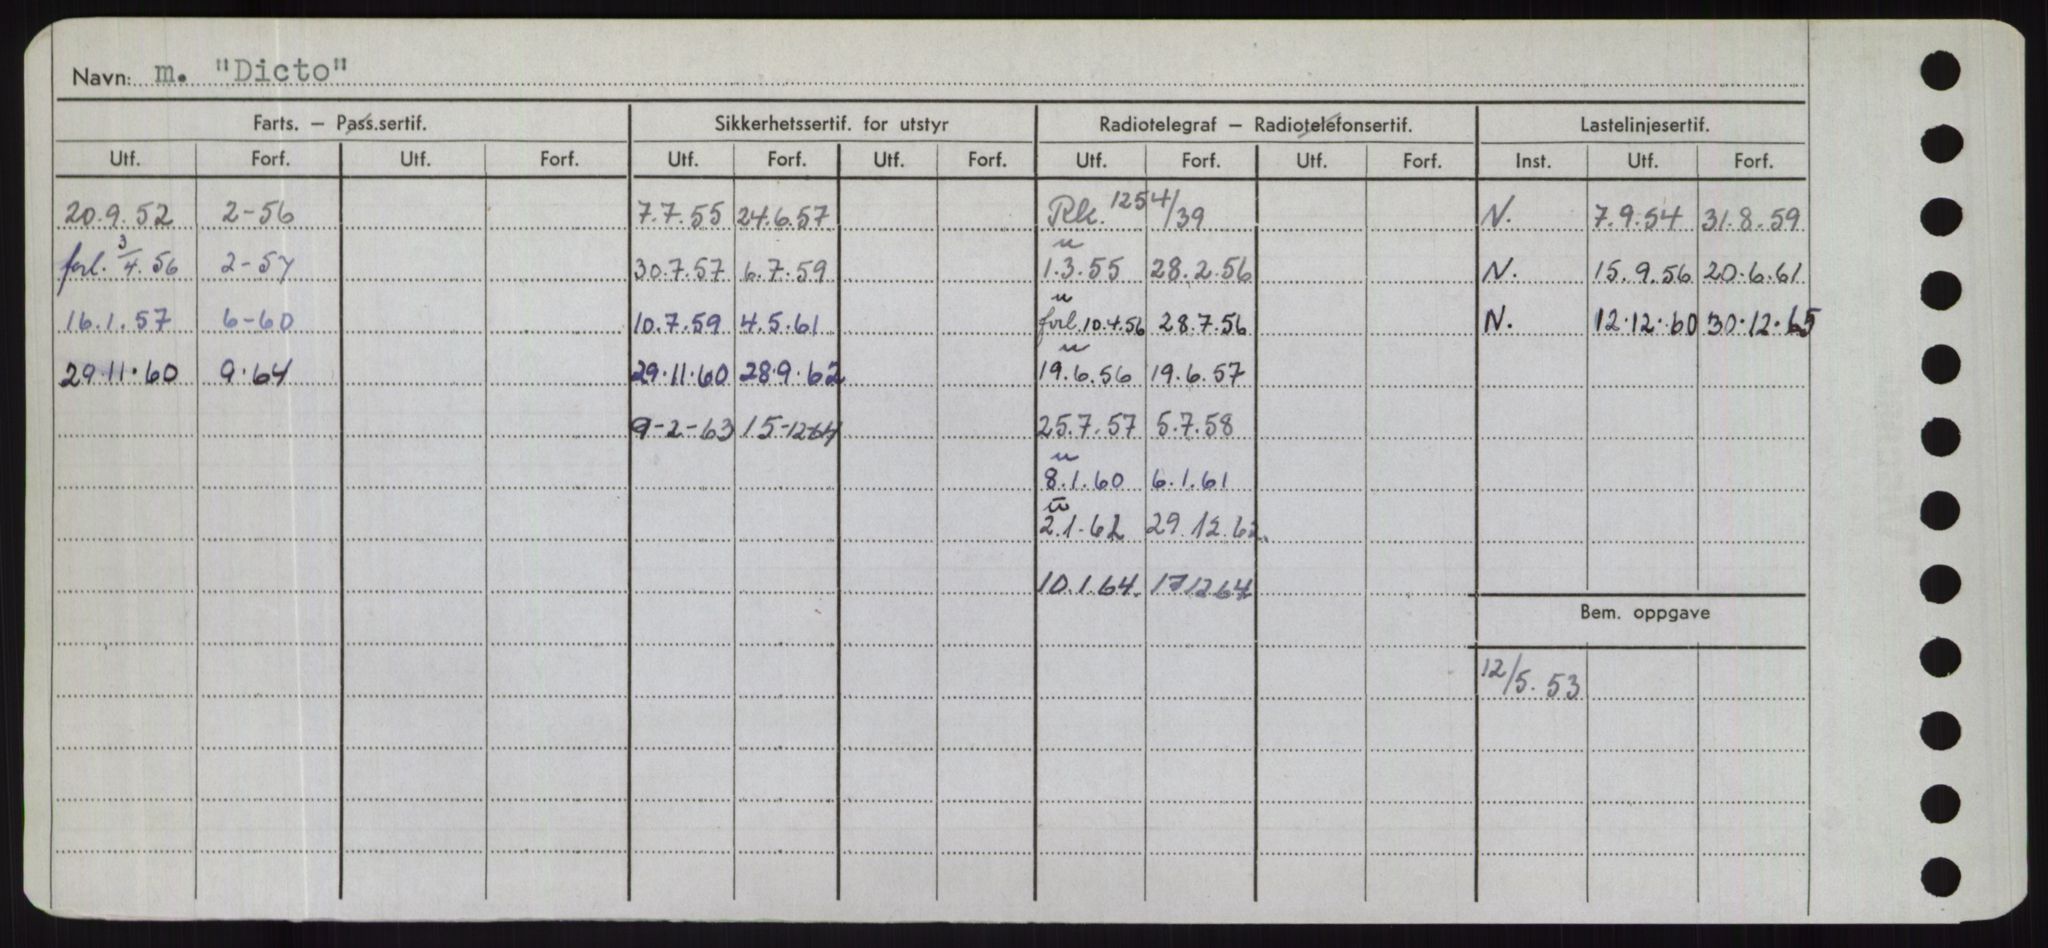 Navn: m. "Dicto"
Farts. — Pass.sertif. Sikkerhetssertif. for utstyr Radiotelegraf — Radiotelefonsertif. Lastelinjesertif.
Utf. Forf. Utf. Forf. Utf. Forf. Utf. Forf. Utf. Forf. Utf. Forf. Inst. Utf. Forf.
20.9.52 2-56 7.7.55 24.6.57 Rk. 1254/39 N. 7.9.54 31.8.59
forl. 3/4.56 2-57 30.7.57 6.7.59 u 1.3.55 28.2.56 N. 15.9.56 20.6.61
16.1.57 6-60 10.7.59 4.5.61 u forl. 10.4.56 28.7.56 N. 12.12.60 30.12.65
29.11.60 9.64 29.11.60 28.9.62 u 19.6.56 19.6.57
9-2-63 15-12-64 25.7.57 5.7.58
u 8.1.60 6.1.61
2.1.62 29.12.62.
10.1.64. 171264
Bem. oppgave
12/5.53